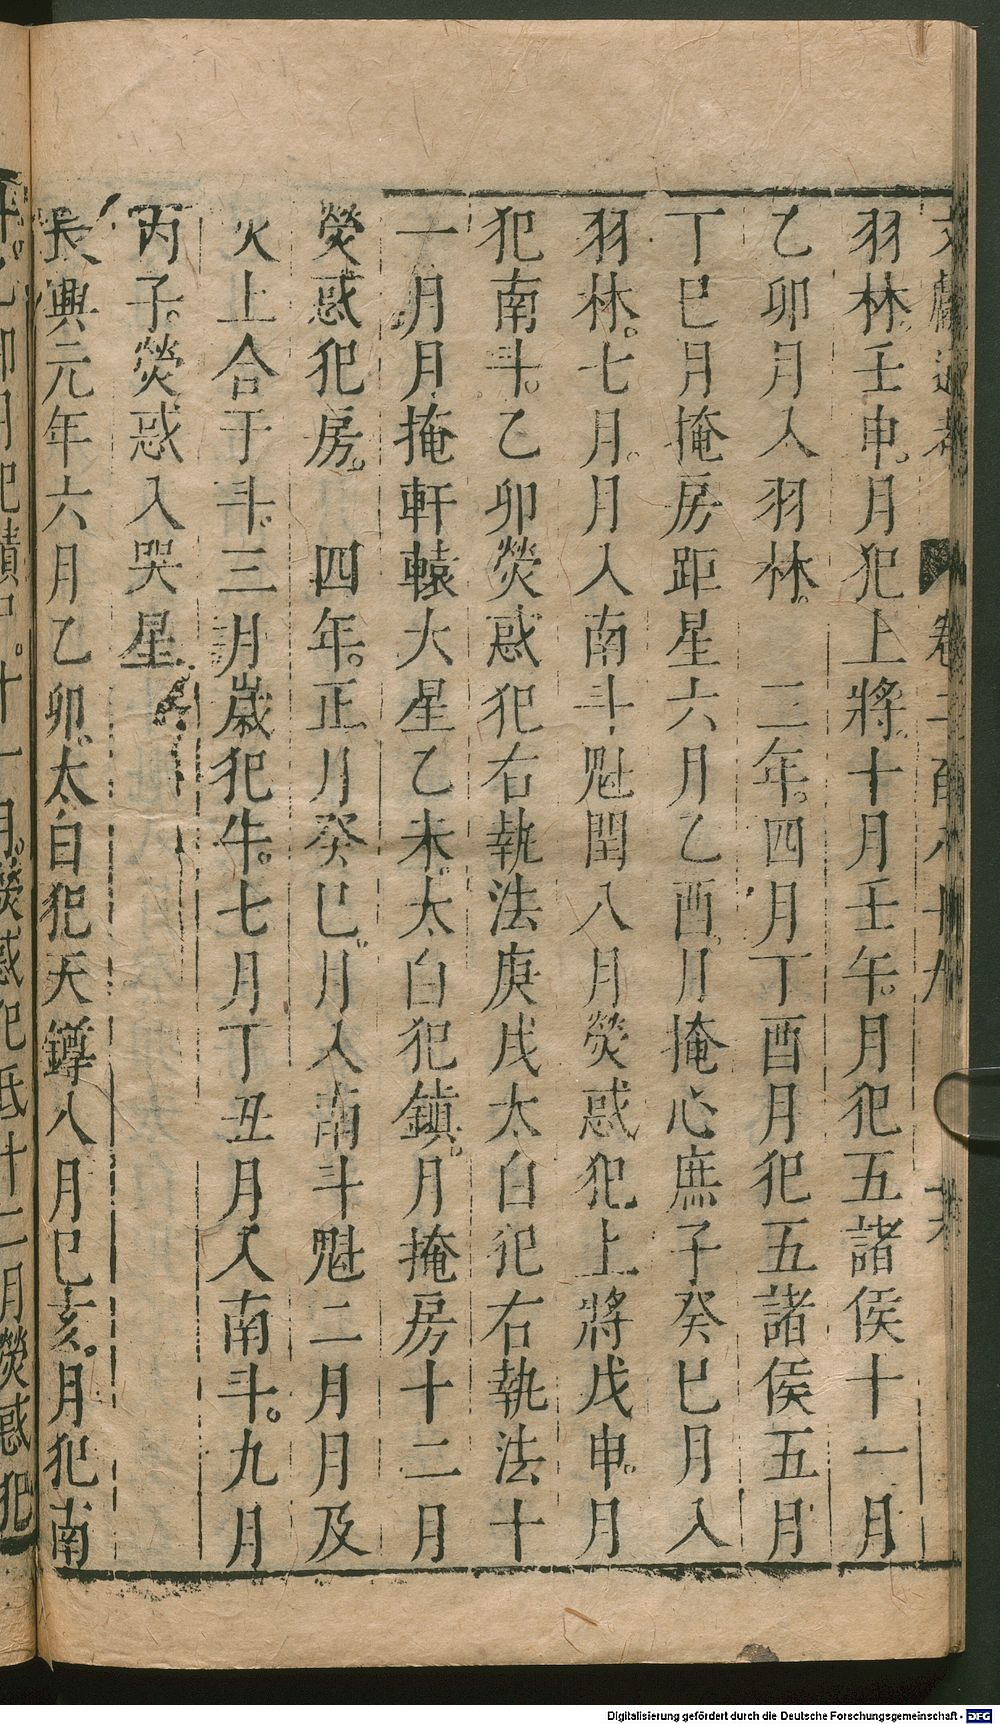 羽林。壬申。月犯上將。十月壬午。月犯五諸侯十一月
乙卯月入羽林。　二年。四月丁酉月犯五諸侯五月
丁巳月掩房距星六月乙酉。月掩心庶子癸巳月入
羽林。七月。月入南斗魁閏八月熒惑犯上將戊申。月
犯南斗。乙卯熒惑犯右執法庚戌太白犯右執法十
一月月掩軒轅大星乙未。太白犯鎮。月掩房十二月
熒惑犯房。　四年。正月癸巳。月入南斗魁二月月及
火土合于斗。三月歲犯牛。七月丁丑月入南斗。九月
丙子。熒惑入哭星
長興元年六月乙卯。太白犯天鐏八月己亥。月犯南
月犯積尸。十一月。熒惑犯氐十二月熒惑犯
Digitalisierung gefördert durch die Deutsche Forschungsgemeinschaft - DFG